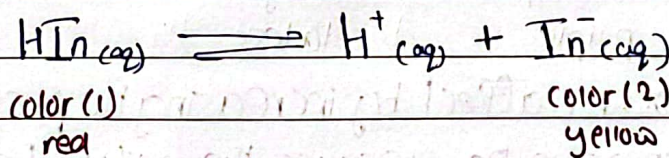 HIn(aq) ⇌ H⁺(aq) + In⁻(aq)
color (1) color (2)
red yellow